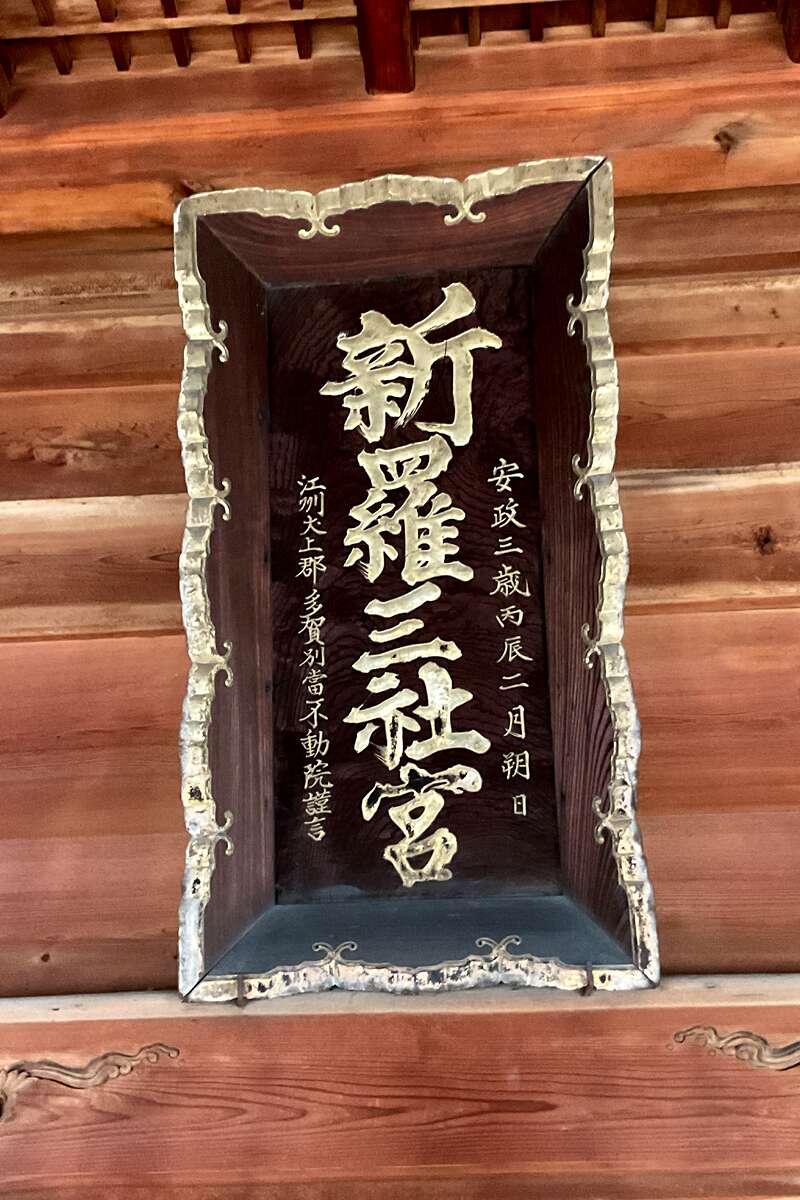 安政三歳丙辰二月朔日
新羅三社宮
江州犬上郡多賀別當不動院謹言